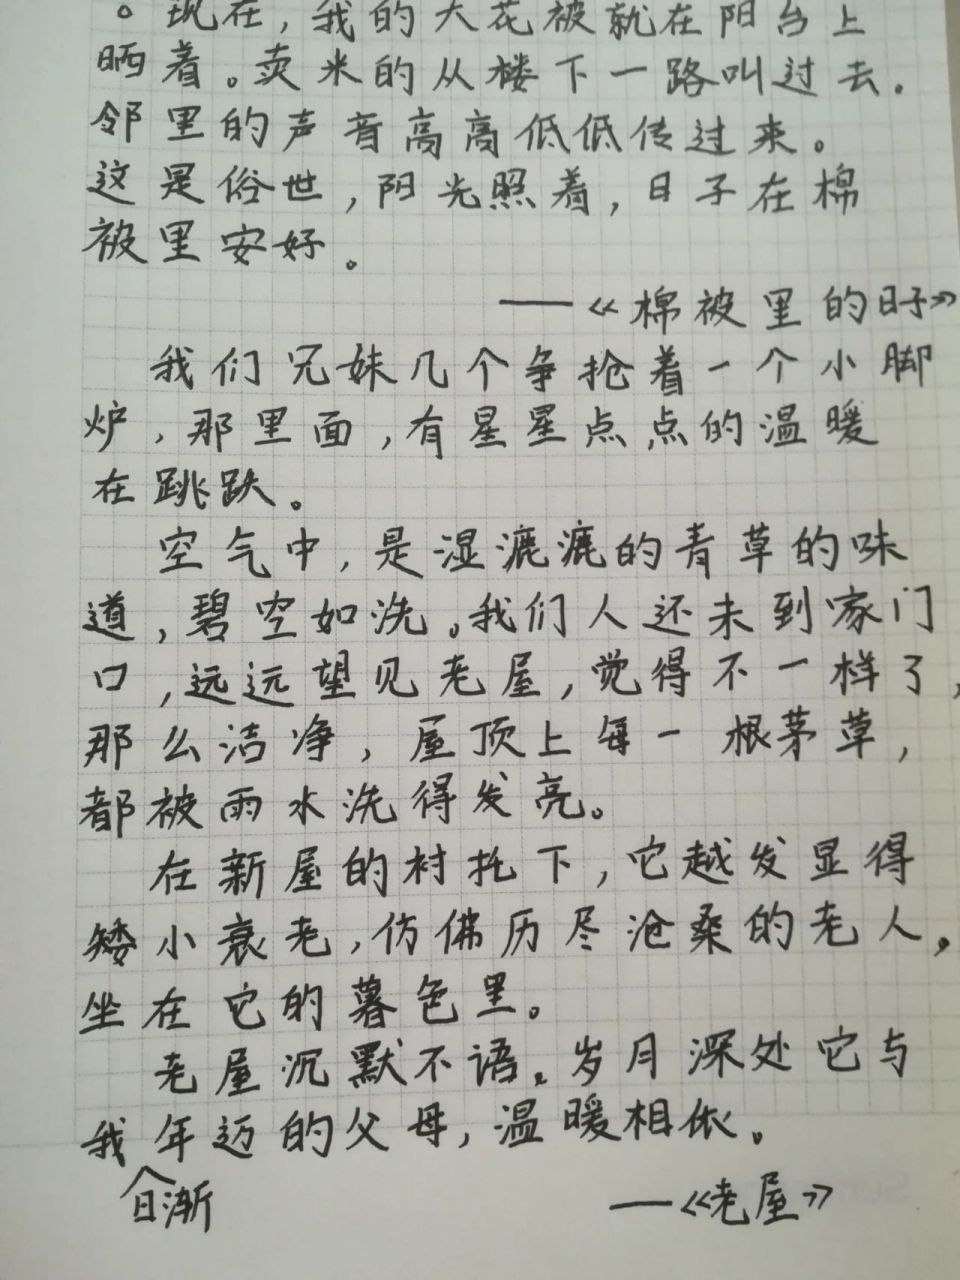 。现在,我的大花被就在阳台上
晒着。卖米的从楼下一路叫过去.
邻里的声音高高低低传过来。
这是俗世,阳光照着,日子在棉
被里安好。
——《棉被里的日子》
我们兄妹几个争抢着一个小脚
炉,那里面,有星星点点的温暖
在跳跃。
空气中,是湿漉漉的青草的味
道,碧空如洗。我们人还未到家门
口,远远望见老屋,觉得不一样了,
那么洁净,屋顶上每一根茅草,
都被雨水洗得发亮。
在新屋的衬托下,它越发显得
矮小衰老,仿佛历尽沧桑的老人,
坐在它的暮色里。
老屋沉默不语。岁月深处它与
我年迈的父母,温暖相依。
日渐
——《老屋》